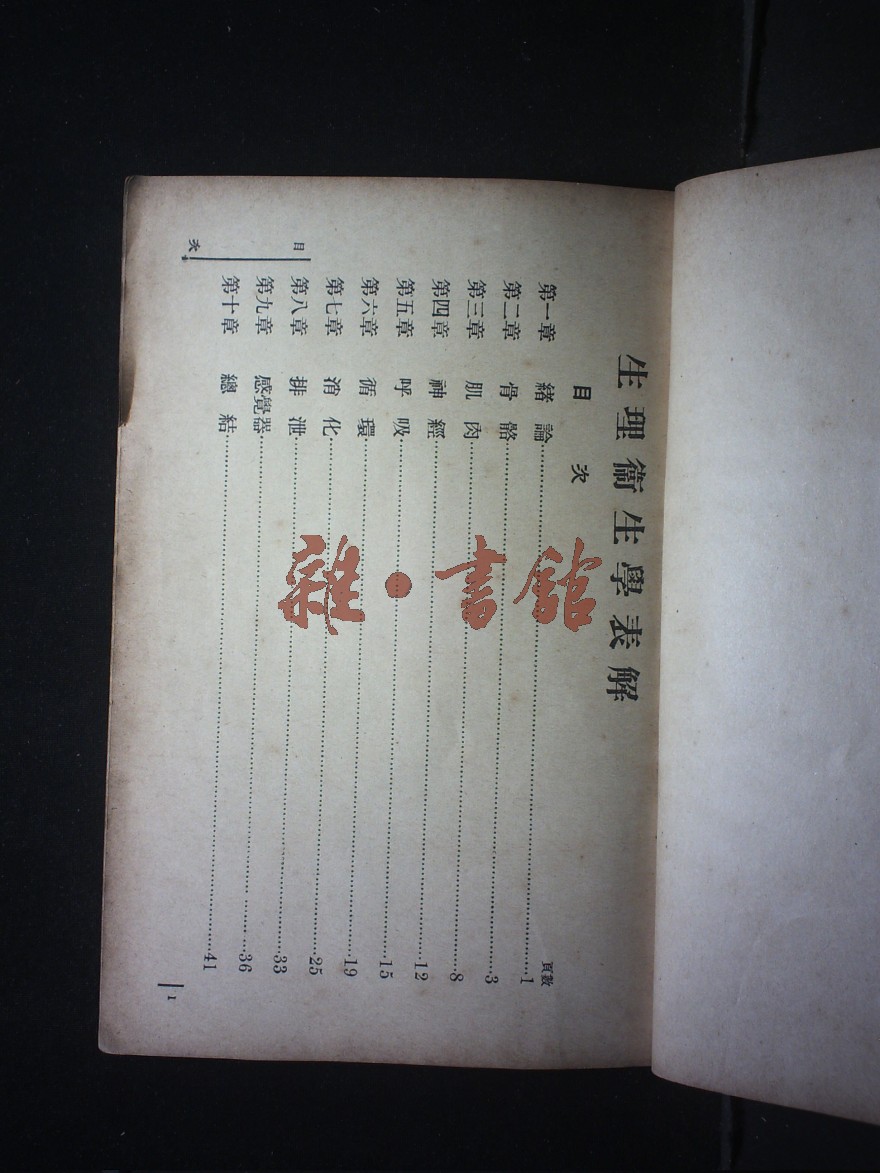 生理衞生學表解
目次
頁數
第一章 緒論……1
第二章 骨骼……3
第三章 肌肉……8
第四章 神經……12
第五章 呼吸……15
第六章 循環……19
第七章 消化……25
第八章 排泄……33
第九章 感覺器……36
第十章 總結……41
目次
1
雜·書館